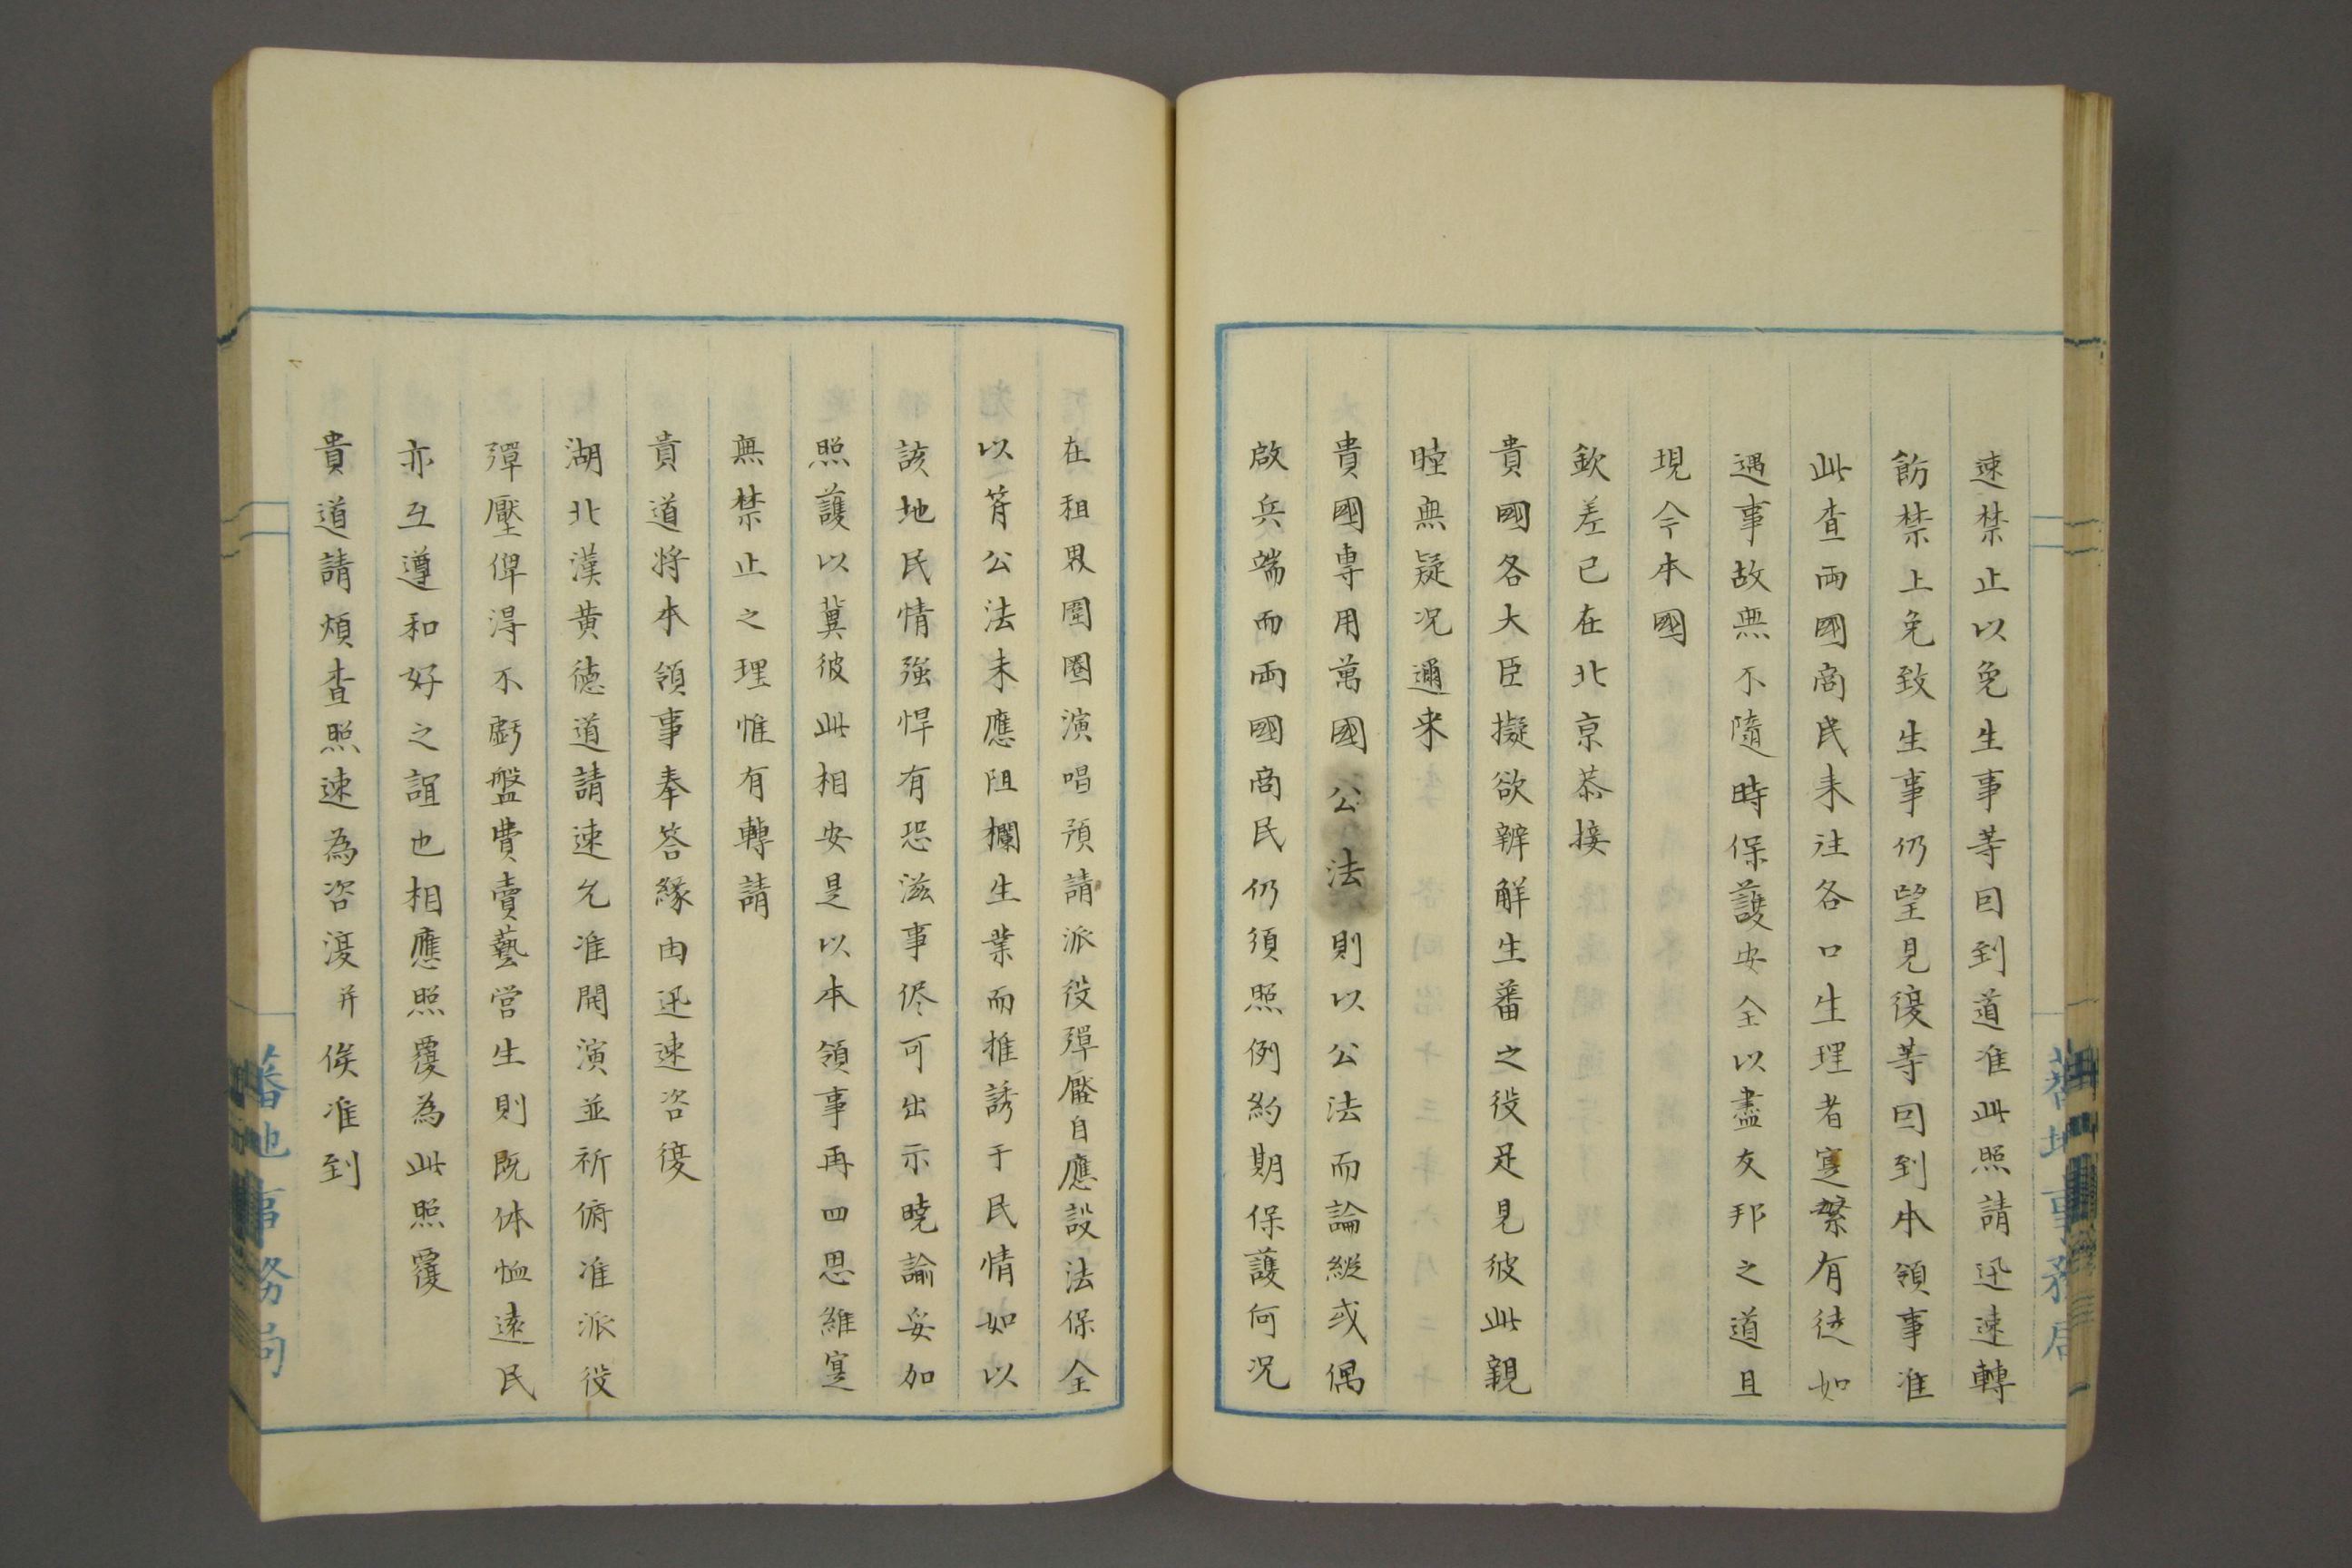 速禁止以免生事等因到道准此照請迅速轉
飭禁止免致生事仍望見復等因到本領事准
此查両國商民来往各口生理者寔繁有徒如
遇事故無不隨時保護安全以盡友邦之道且
現今本國
欽差已在北京恭接
貴國各大臣擬欲辨解生蕃之役足見彼此親
睦無疑况邇来
貴國專用萬國公法則以公法而論縱或偶
啟兵端而両國商民仍須照例約期保護何况
在租界圍圈演唱預請派役彈壓自應設法保全
以符公法未應阻攔生業而推誘于民情如以
該地民情強悍有恐滋事侭可出示曉諭妥加
照護以冀彼此相安是以本領事再四思維寔
無禁止之理惟有轉請
貴道将本領事奉答緣由迅速咨復
湖北漢黄德道請速允准開演並祈俯准派役
彈壓俾得不虧盤費賣藝営生則既体恤遠民
亦互遵和好之誼也相應照覆為此照覆
貴道請煩查照速為咨復并俟准到
蕃地事務局
蕃地事務局